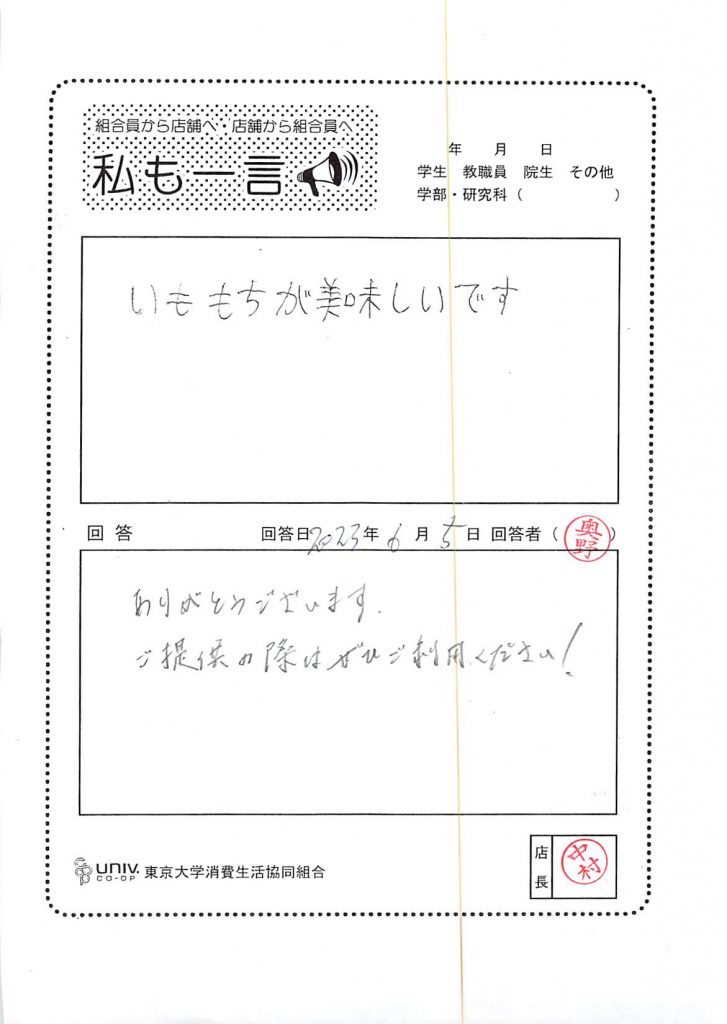 組合員から店舗へ・店舗から組合員へ
私も一言
年 月 日
学生 教職員 院生 その他
学部・研究科（ ）
いももちが美味しいです
回答 回答日2023年6月5日 回答者（奥野）
ありがとうございます.
ご提供の際はぜひご利用ください!
CO-OP UNIV. CO-OP 東京大学消費生活協同組合
店長 中村